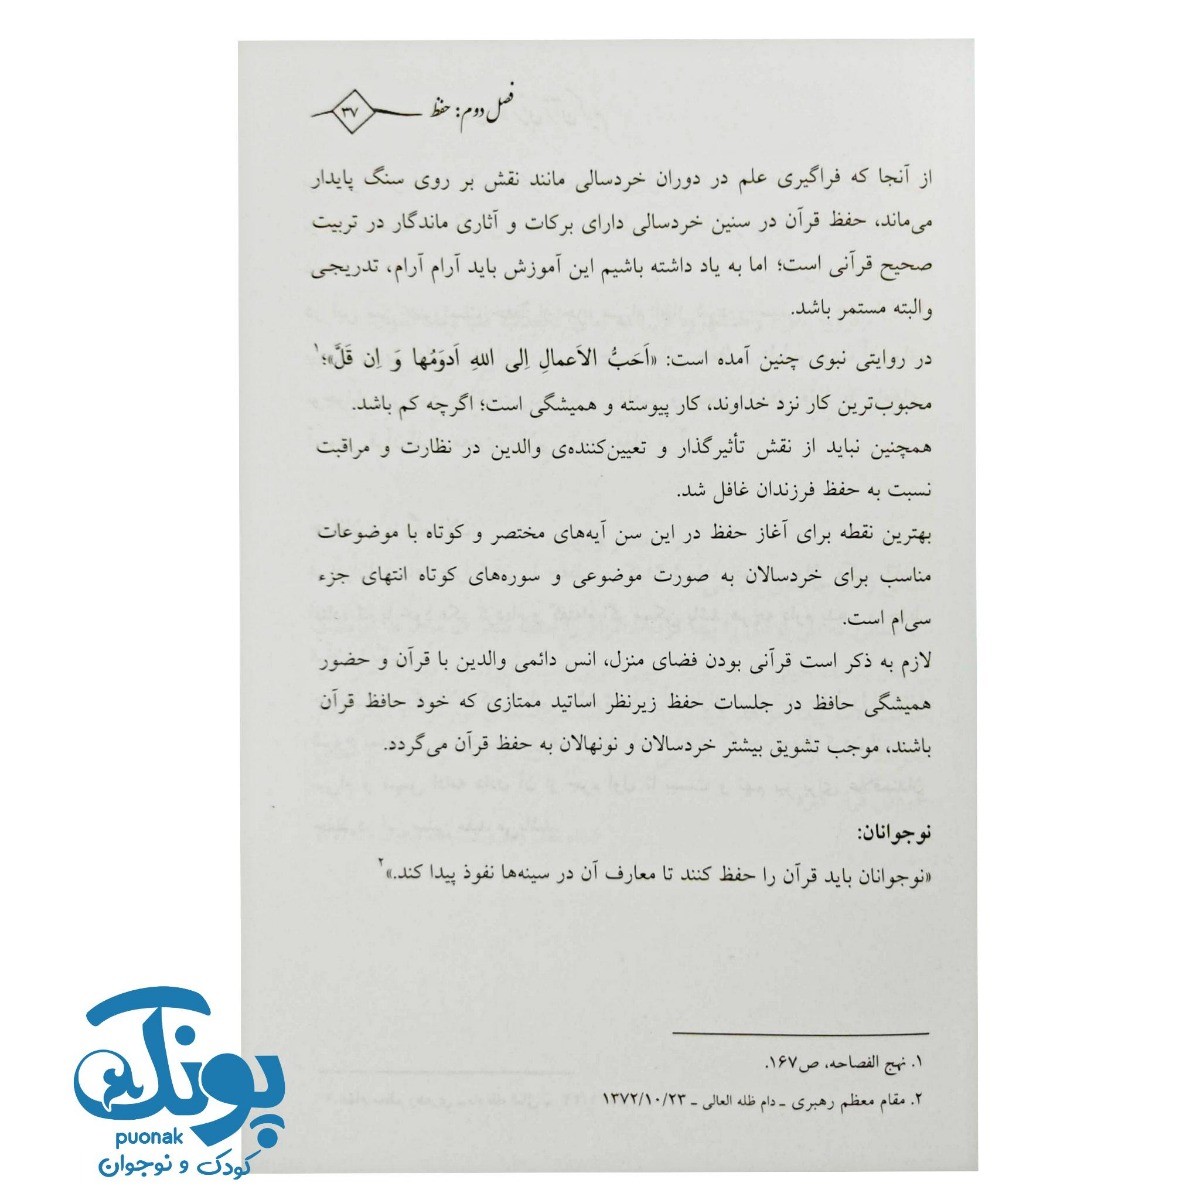 فصل دوم: حفظ
۳۷
از آنجا که فراگیری علم در دوران خردسالی مانند نقش بر روی سنگ پایدار
می‌ماند، حفظ قرآن در سنین خردسالی دارای برکات و آثاری ماندگار در تربیت
صحیح قرآنی است؛ اما به یاد داشته باشیم این آموزش باید آرام آرام، تدریجی
والبته مستمر باشد.
در روایتی نبوی چنین آمده است: «اَحَبُّ الاَعمالِ اِلی اللهِ اَدوَمُها وَ اِن قَلَّ»؛۱
محبوب‌ترین کار نزد خداوند، کار پیوسته و همیشگی است؛ اگرچه کم باشد.
همچنین نباید از نقش تأثیرگذار و تعیین‌کننده‌ی والدین در نظارت و مراقبت
نسبت به حفظ فرزندان غافل شد.
بهترین نقطه برای آغاز حفظ در این سن آیه‌های مختصر و کوتاه با موضوعات
مناسب برای خردسالان به صورت موضوعی و سوره‌های کوتاه انتهای جزء
سی‌ام است.
لازم به ذکر است قرآنی بودن فضای منزل، انس دائمی والدین با قرآن و حضور
همیشگی حافظ در جلسات حفظ زیرنظر اساتید ممتازی که خود حافظ قرآن
باشند، موجب تشویق بیشتر خردسالان و نونهالان به حفظ قرآن می‌گردد.
نوجوانان:
«نوجوانان باید قرآن را حفظ کنند تا معارف آن در سینه‌ها نفوذ پیدا کند.»۲
۱. نهج الفصاحه، ص۱۶۷.
۲. مقام معظم رهبری ـ دام ظله العالی ـ ۱۳۷۲/۱۰/۲۳
پونک
puonak
کودک و نوجوان